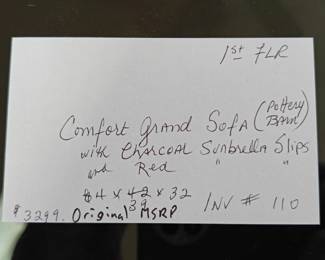 1st FLR
Comfort Grand Sofa (Pottery Barn)
with Charcoal Sunbrella Slips
and Red " "
84 x 42 x 32
39
$3299. Original MSRP
INV # 110